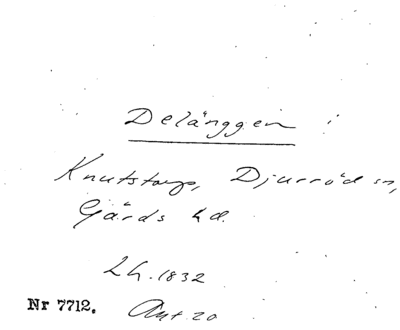 Delänggen i
Knutstorp, Djurröd sn,
Gärds hd.
Lh. 1832
Nr 7712. Ant. 20